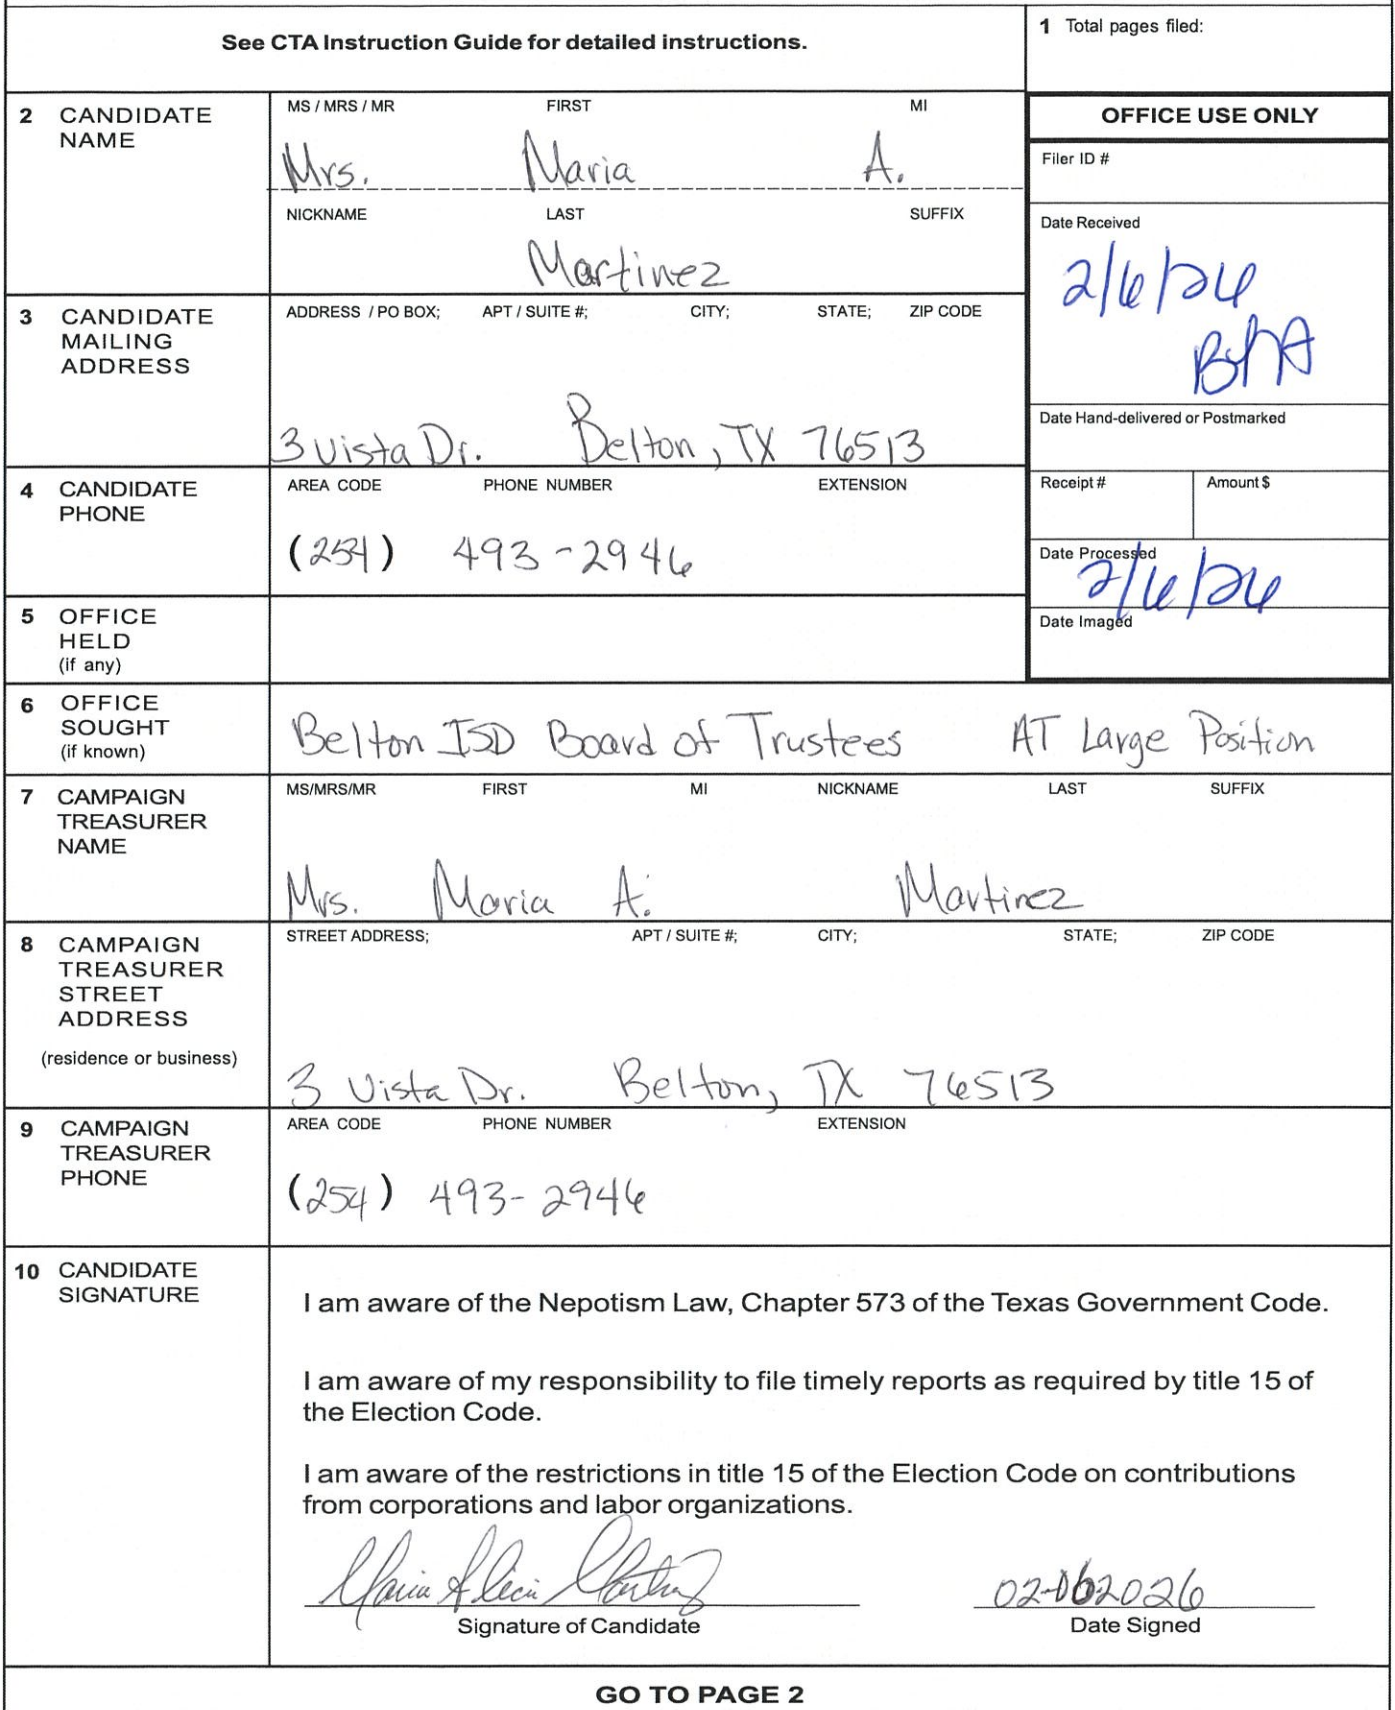 See CTA Instruction Guide for detailed instructions.
1 Total pages filed:
2 CANDIDATE NAME
MS / MRS / MR FIRST MI
Mrs. Maria A.
NICKNAME LAST SUFFIX
Martinez
OFFICE USE ONLY
Filer ID #
Date Received
2/6/26
BHA
3 CANDIDATE MAILING ADDRESS
ADDRESS / PO BOX; APT / SUITE #; CITY; STATE; ZIP CODE
3 Vista Dr. Belton, TX 76513
Date Hand-delivered or Postmarked
4 CANDIDATE PHONE
AREA CODE PHONE NUMBER EXTENSION
(254) 493-2946
Receipt # Amount $
Date Processed
2/6/26
Date Imaged
5 OFFICE HELD (if any)
6 OFFICE SOUGHT (if known)
Belton ISD Board of Trustees AT Large Position
7 CAMPAIGN TREASURER NAME
MS/MRS/MR FIRST MI NICKNAME LAST SUFFIX
Mrs. Maria A. Martinez
8 CAMPAIGN TREASURER STREET ADDRESS
(residence or business)
STREET ADDRESS; APT / SUITE #; CITY; STATE; ZIP CODE
3 Vista Dr. Belton, TX 76513
9 CAMPAIGN TREASURER PHONE
AREA CODE PHONE NUMBER EXTENSION
(254) 493-2946
10 CANDIDATE SIGNATURE
I am aware of the Nepotism Law, Chapter 573 of the Texas Government Code.
I am aware of my responsibility to file timely reports as required by title 15 of
the Election Code.
I am aware of the restrictions in title 15 of the Election Code on contributions
from corporations and labor organizations.
Maria Alicia Martinez 02-06-2026
Signature of Candidate Date Signed
GO TO PAGE 2